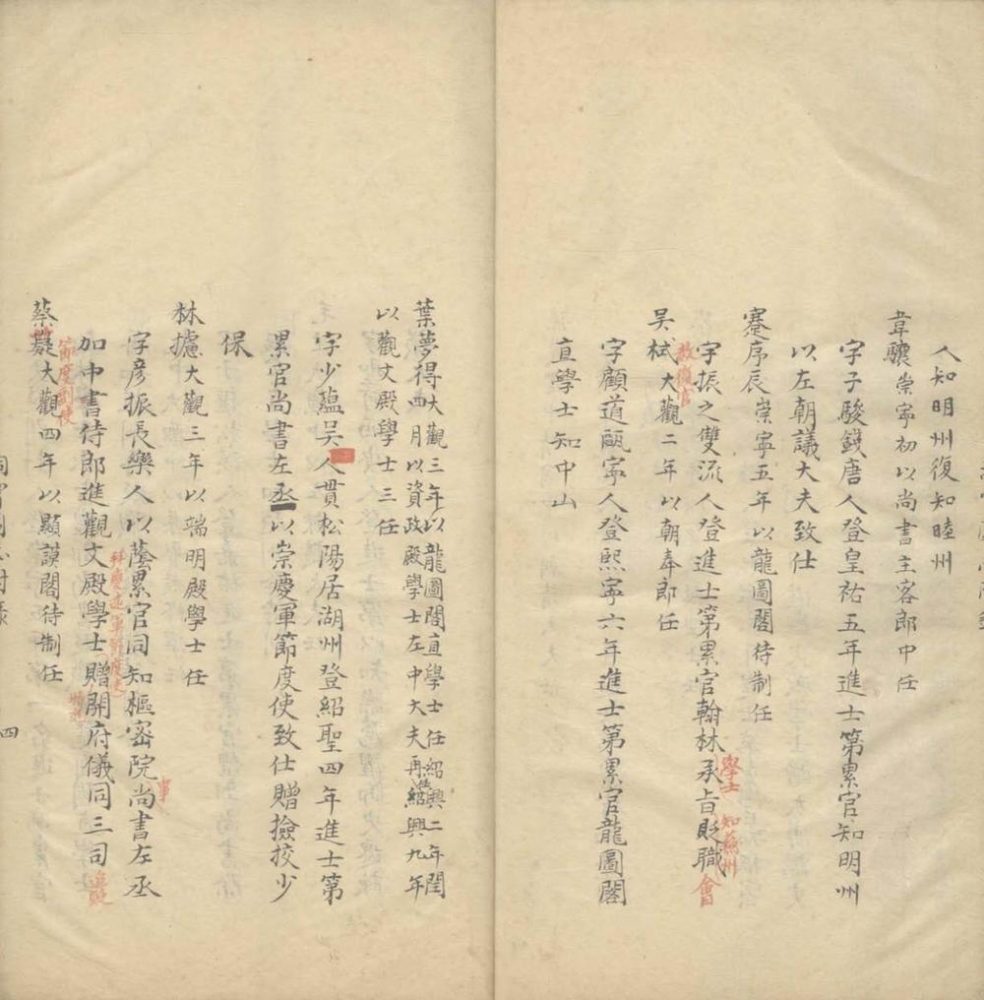 人知明州復知睦州
韋驤崇寧初以尚書主客郎中任
字子駿錢唐人登皇祐五年進士第累官知明州
以左朝議大夫致仕
蹇序辰崇寧五年以龍圖閣待制任
字振之雙流人登進士第累官翰林承旨貶職會
學士 知蘇州
赦復官
吳栻大觀二年以朝奉郎任
字顧道甌寧人登熙寧六年進士第累官龍圖閣
直學士知中山
葉夢得大觀三年以龍圖閣直學士任紹興二年閏
四月以資政殿學士左中大夫再任紹興九年
以觀文殿學士三任
字少蘊吳人貫松陽居湖州登紹聖四年進士第
累官尚書左丞以崇慶軍節度使致仕贈撿挍少
保
林攄大觀三年以端明殿學士任
字彥振長樂人以蔭累官同知樞密院尚書左丞
事
加中書侍郎進觀文殿學士贈開府儀同三司
蔡薿大觀四年以顯謨閣待制任
四